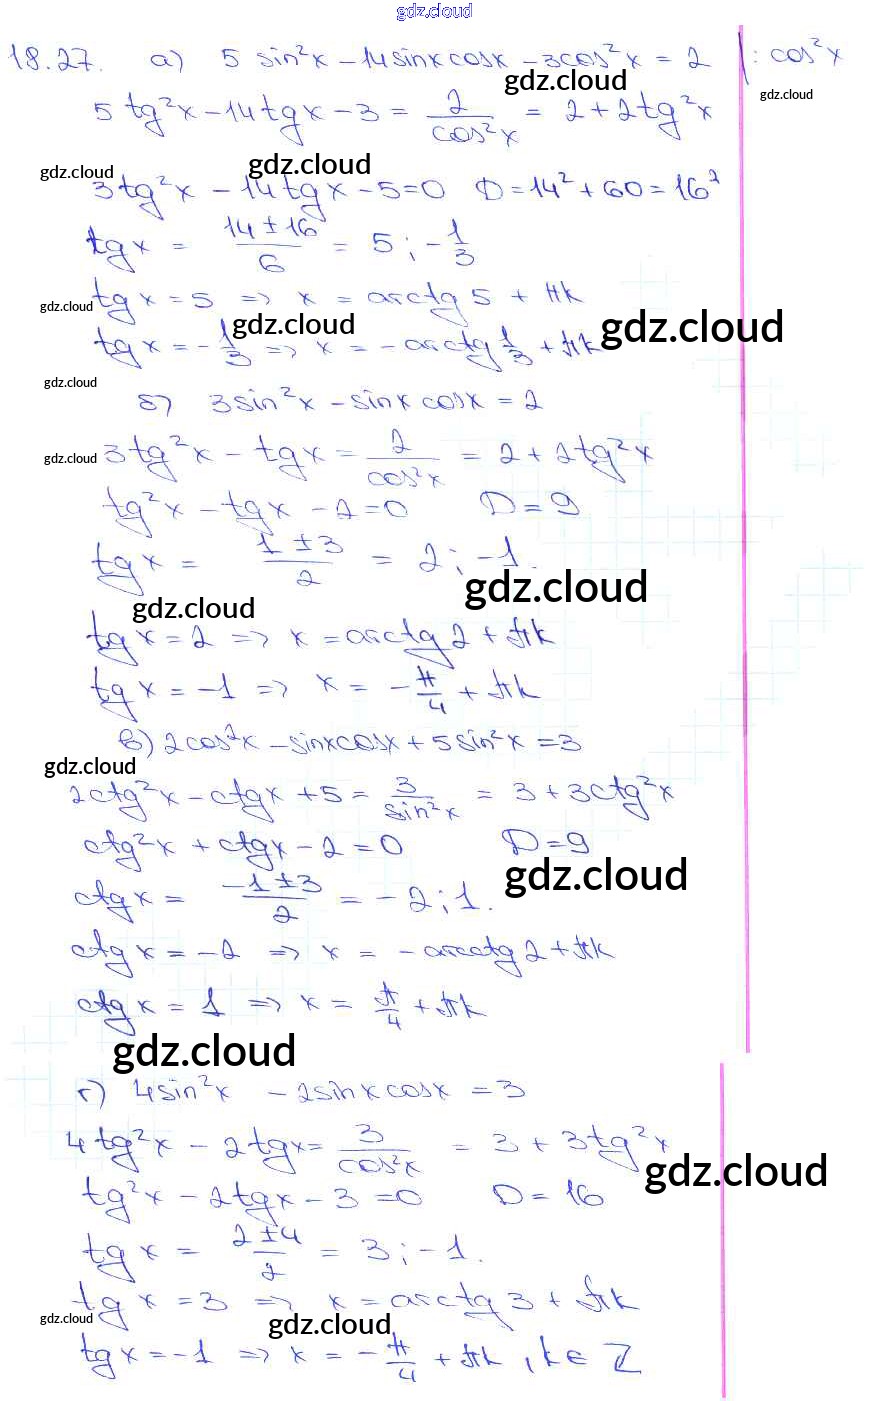 gdz.cloud
18.27. а) 5 sin²x - 14 sinx cosx - 3cos²x = 2 | : cos²x
gdz.cloud gdz.cloud
5 tg²x - 14 tgx - 3 = 2/cos²x = 2 + 2tg²x
gdz.cloud gdz.cloud
3tg²x - 14 tgx - 5 = 0 D = 14² + 60 = 16²
tgx = (14 ± 16)/6 = 5 ; -1/3
gdz.cloud tgx = 5 => x = arctg 5 + πk
gdz.cloud gdz.cloud
tgx = -1/3 => x = -arctg 1/3 + πk
gdz.cloud
б) 3sin²x - sinx cosx = 2
gdz.cloud 3tg²x - tgx = 2/cos²x = 2 + 2tg²x
tg²x - tgx - 2 = 0 D = 9
tgx = (1 ± 3)/2 = 2 ; -1.
gdz.cloud gdz.cloud
tgx = 2 => x = arctg 2 + πk
tgx = -1 => x = -π/4 + πk
в) 2cos²x - sinxcosx + 5sin²x = 3
gdz.cloud
2ctg²x - ctgx + 5 = 3/sin²x = 3 + 3ctg²x
ctg²x + ctgx - 2 = 0 D = 9
gdz.cloud
ctgx = (-1 ± 3)/2 = -2 ; 1.
ctgx = -2 => x = -arcctg 2 + πk
ctgx = 1 => x = π/4 + πk
gdz.cloud
г) 4sin²x - 2sinx cosx = 3
4tg²x - 2tgx = 3/cos²x = 3 + 3tg²x
gdz.cloud
tg²x - 2tgx - 3 = 0 D = 16
tgx = (2 ± 4)/2 = 3 ; -1.
tgx = 3 => x = arctg 3 + πk
gdz.cloud gdz.cloud
tgx = -1 => x = -π/4 + πk , k ∈ Z